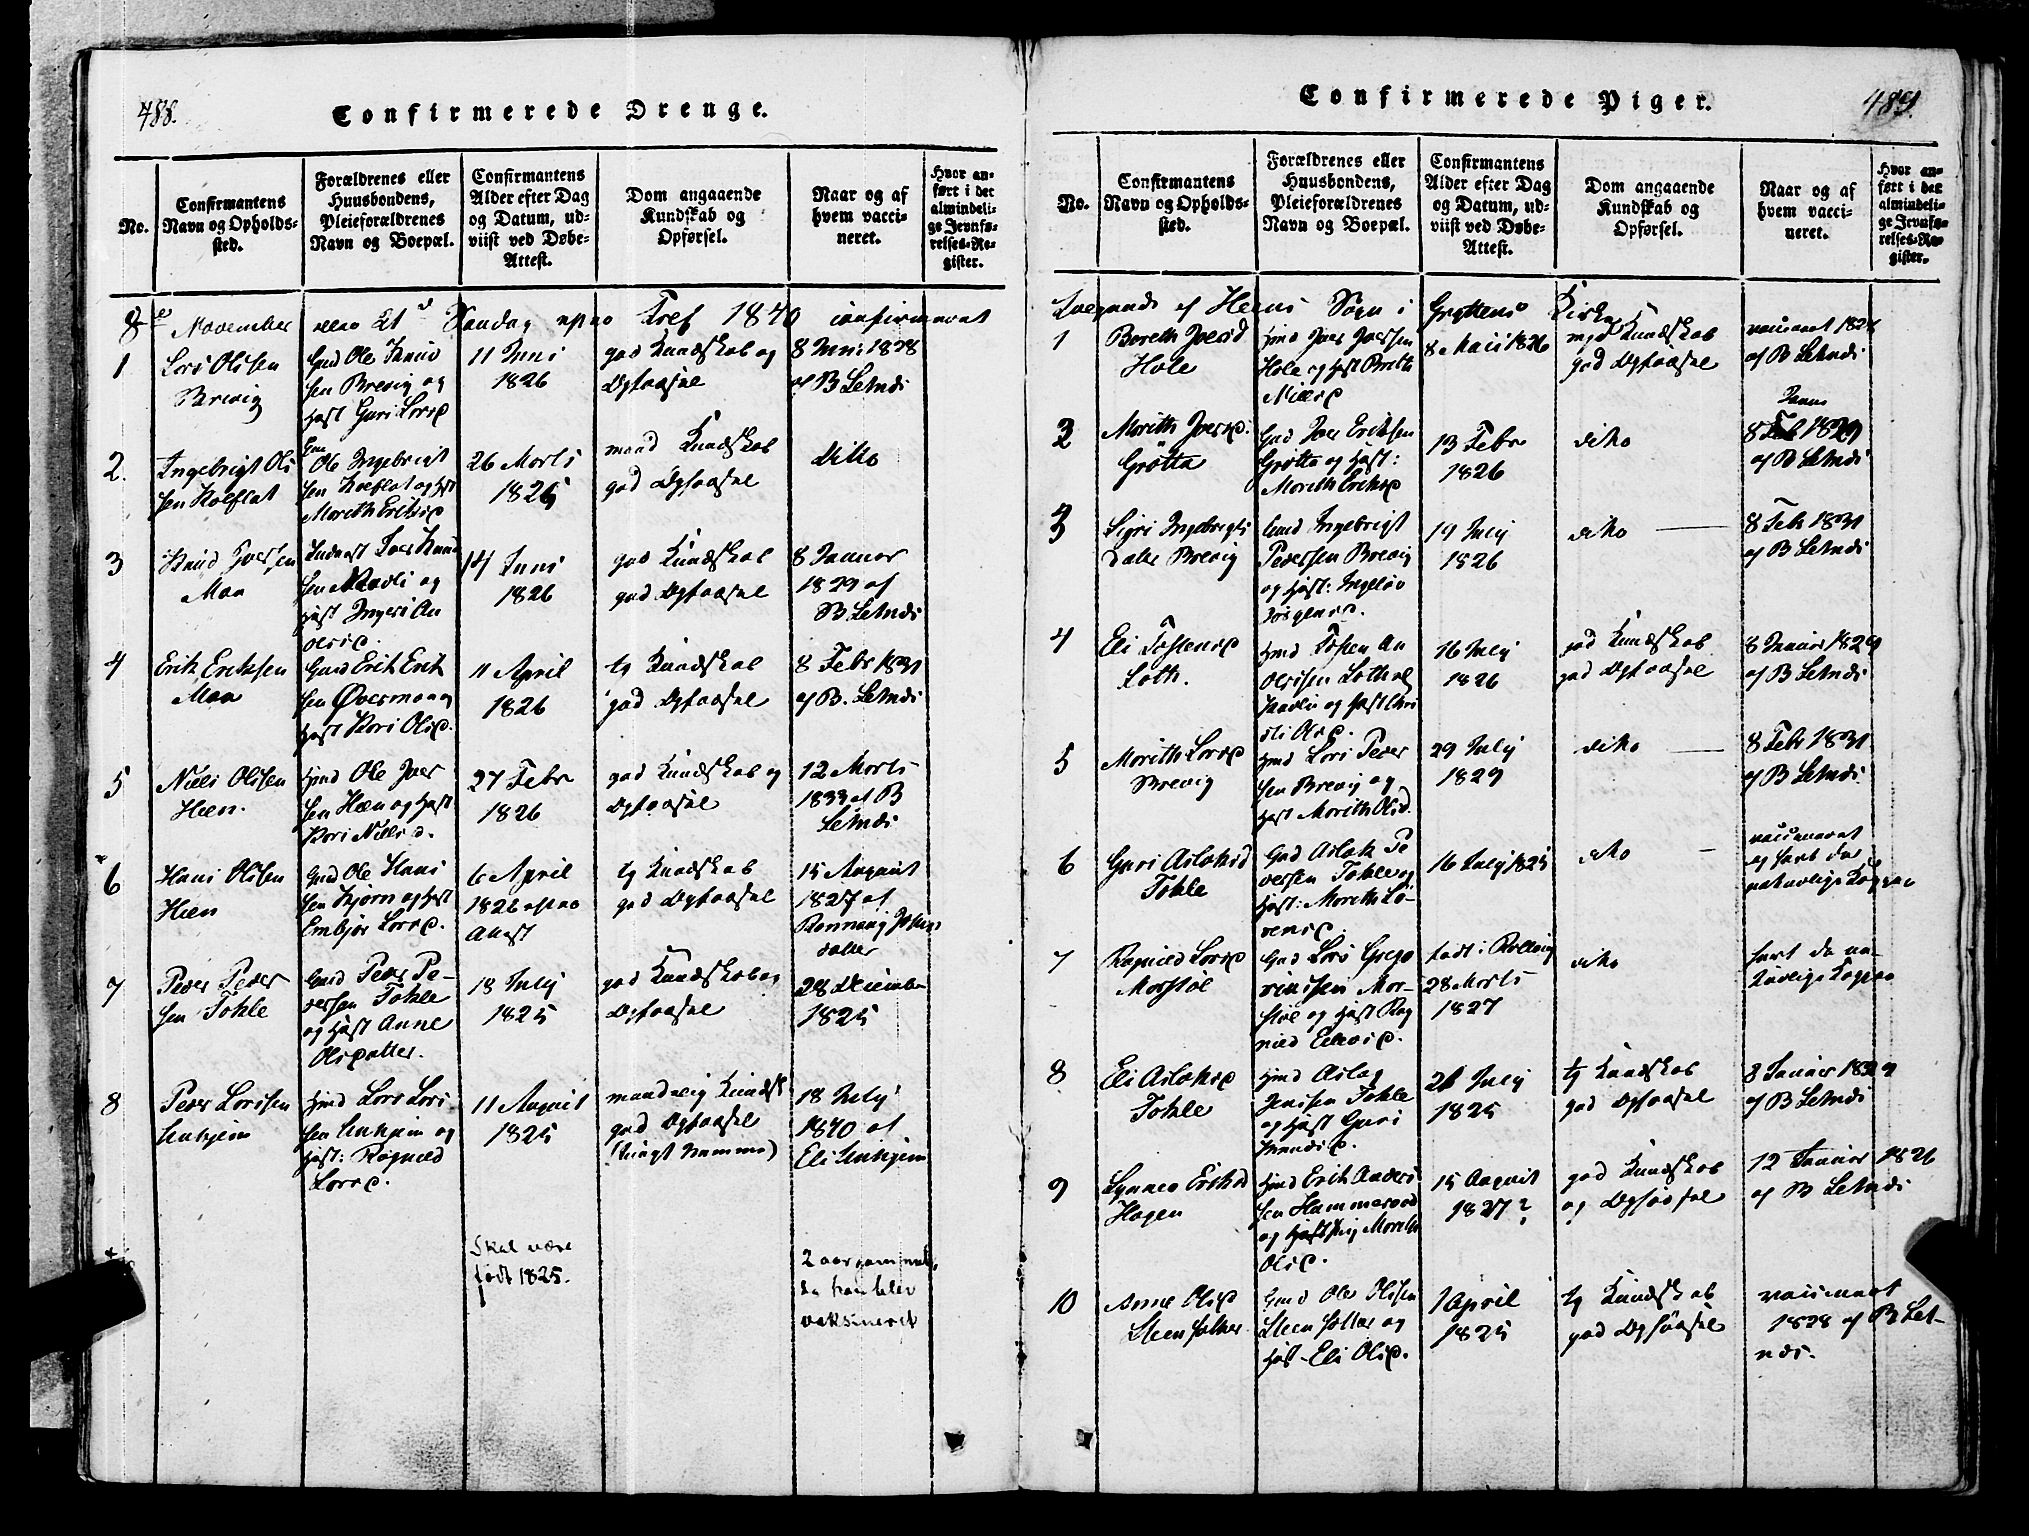 488.
Confirmerede Drenge.
No.
Confirmantens
Navn og Opholds-
sted.
Forældrenes eller
Huusbondens,
Pleieforældrenes
Navn og Boepæl.
Confirmantens
Alder efter Dag
og Datum, ud-
viist ved Døbe-
Attest.
Dom angaaende
Kundskab og
Opførsel.
Naar og af
hvem vacci-
neret.
Hvor an-
ført i det
almindeli-
ge Jevnfø-
relses-Re-
gister.
8de November 21 Søndag Tref 1840 confirmeret
1
Lars Olsen
Brevig
Gmd Ole Knud
sen Brevig og
Hust Guri Larsd
11 Juni
1826
god Kundskab og
Opførsel
8 Juni 1828
af B Setnæs
2.
Ingebrigt Ol
sen Kolflat
Gm
Ole Ingebrigt
sen Kolflat og Hst
Marith Eriksd
26 Marts
1826
maad Kundskab
god Opførsel
ditto
3
Knud Iversen
Maa
Iver Knud
sen og
Hust Ingeri An
dersd.
14 Juni
1826
god Kundskab
god Opførsel
8 Januar
1829 af
B Setnæs
4
Erik Eriksen
Maa
Gmd Erik Erik
sen Øvermaa og
Hust Kari Olsd.
11 April
1826
tg Kundskab
god Opførsel
8 Febr 1831
af B. Setnæs
5
Niels Olsen
Hæn.
Hmd Ole Iver
sen Hæn og Hust
Kari Nielsd.
27 Febr
1826
god Kundskab og
Opførsel
12 Marts
1833 af B
Setnæs
6
Hans Olsen
Hæn
Gmd Ole Hans
sen Kjørn og Hust
Embjør Larsd.
6 April
1826
Attest
tg Kundskab
god Opførsel
15 August
1827 af
Rønnaug Johans
datter
7
Peder Peder
sen Tokle
Gmd Peder Pe-
dersen Tokle
og Hust Anne
Olsdatter.
18 July
1825
god Kundskab og
Opførsel
28 December
1825
8
Peder Larssen
Unhjem
Hmd Lars Lars
sen Unhjem og
Hust: Ragnild
Larsd.
11 August
1825
maadelig Kundsk
god Opførsel
(tungt Nemme)
18 July
1840 af
Eli Unhjem
Skal være
født 1825.
2 aar gammel,
da han blev
vaksineret
Confirmerede Piger.
489.
No.
Confirmantens
Navn og Opholds-
sted.
Forældrenes eller
Huusbondens,
Pleieforældrenes
Navn og Boepæl.
Confirmantens
Alder efter Dag
og Datum, ud-
viist ved Døbe-
Attest.
Dom angaaende
Kundskab og
Opførsel.
Naar og af
hvem vacci-
neret.
Hvor an-
ført i det
almindeli-
ge Jevnfø-
relses-Re-
gister.
af Heens Sogn i Gryttens Kirke
1
Bereth Iversd
Hole
Hmd Iver Iversen
Hole og Hust Breth
Nielsd
8 Maii 1826
mgd Kundskab
god Opførsel
vaccineret 1828
af B Setnæs
2
Marith Iversd.
Grøtta
Gmd Iver Eriksen
Grøtta og Hust:
Marith Eriksd
13 Febr
1826
dito
Janu
8 1829
af B Setnæs
3
Sigri Ingebrigts
datter Brevig
Gmd Ingebrigt
Pedersen Brevig
og Hust: Ingeløv
Jørgensd.
19 July
1826
dito
8 Febr 1831
af B Setnæs
4
Eli Tostensd
Loth.
Hmd Tosten An
dersen Loth
og Hust Chri
sti Olsd.
16 July
1826
god Kundskab
god Opførsel
8 Januar 1829
af B Setnæs
5
Marith Larsd
Brevig
Hmd Lars Peder
sen Brevig og
Hust Marith Olsd.
29 July
1829
dito
8 Febr 1831
af B Setnæs
6
Guri Aslaksd
Tokle
Gmd Aslak Pe
dersen Tokle og
Hust: Marith Lo-
rensd.
16 July 1825
dito
vaccineret
og havt de
naturlige Kopper
7
Ragnild Larsd
Morstøl
Gmd Lars Grego
riussen Mor-
støl og Hust Rag
nild Ellevsd.
født i Rødven
28 Marts
1827
dito
havt de na-
turlige Kopper
8
Eli Aslaksd
Tokle
Hmd Aslag
Jensen Tokle
og Hust Guri
21 July
1825
tg Kundskab
god Opførsel
8 Januar 1829
af B Setnæs
9
Synnev Eriksd
Hagen
Hmd Erik Anders
sen Hammervold
og Marith
Olsd.
15 August
1827?
god Kundskab
og Opførsel
12 Januar 1826
af B Setnæs
10
Anne Olsd
Steensætter
Gmd Ole Olsen
Steensætter og
Hust- Eli Olsd.
1 April
1825
tg Kundskab
god Opførsel
vaccineret
1828 af B Set-
næs.